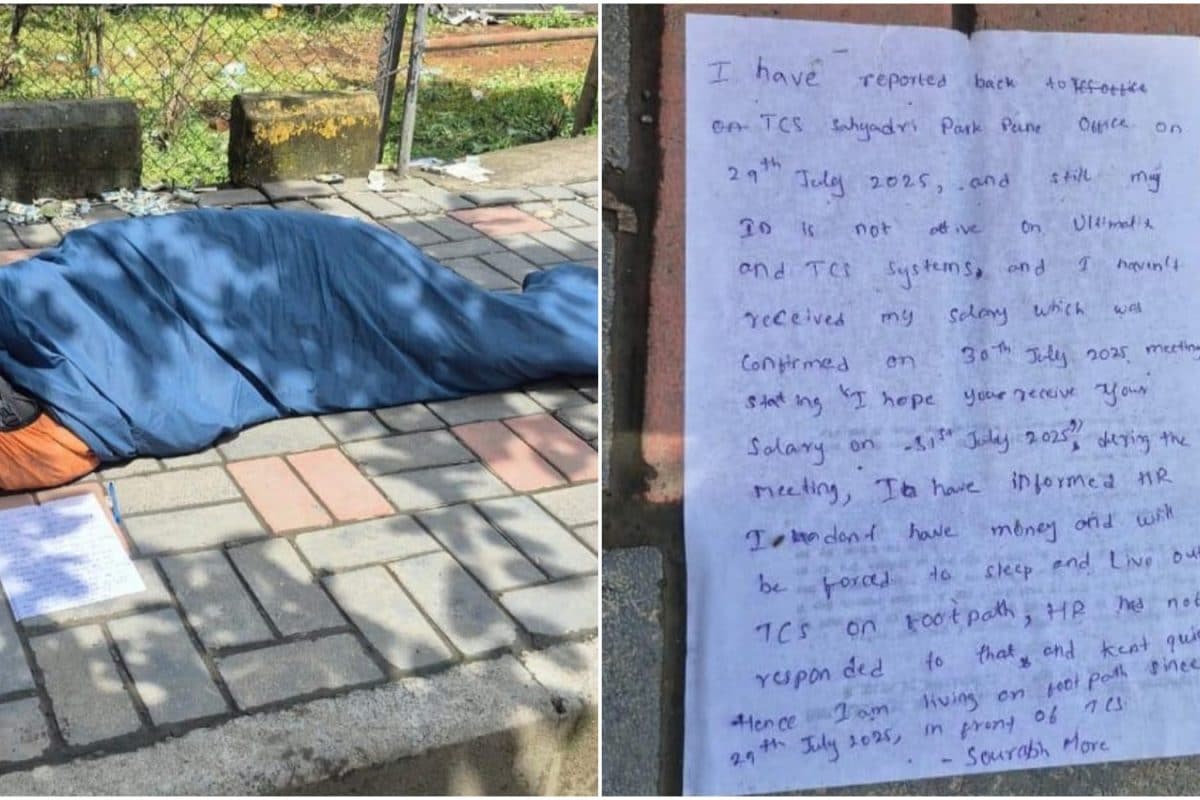 I have reported back to Off office
on TCS Sahyadri Park Pune Office on
29th July 2025, and still my
ID is not active on Ultimatix
and TCS systems, and I haven't
received my salary which was
Confirmed on 30th July 2025 meeting
stating "I hope you receive your
Salary on 31st July 2025", during the
meeting, I have informed HR
I dont have money and will
be forced to sleep and Live
TCS on footpath, HR has not
responded to that, and kept
Hence I am living on footpath since
29th July 2025, in front of TCS.
- Sourabh More